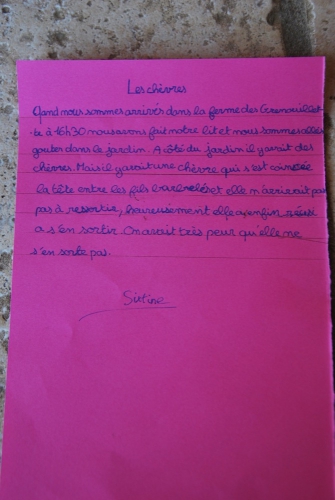 Les chèvres
Quand nous sommes arrivés dans la ferme des Grenouillet-
-te à 16h30 nous avons fait notre lit et nous sommes allés
gouter dans le jardin. A côté du jardin il y avait des
chèvres. Mais il y avait une chèvre qui s'est coincée
la tête entre les fils barbelés et elle n'arrivait pas
pas à ressortir, heureusement elle a enfin réussi
a s'en sortir. On avait très peur qu'elle ne
s'en sorte pas.
Sirine